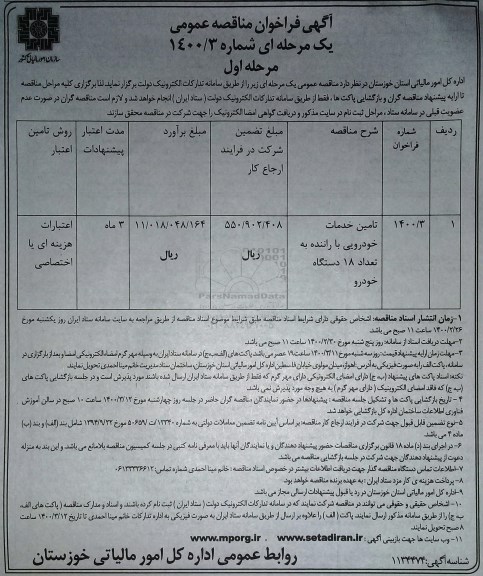 آگهی فراخوان مناقصه عمومی
یک مرحله ای شماره ۱۴۰۰/۳
مرحله اول
اداره کل امور مالیاتی استان خوزستان در نظر دارد مناقصه عمومی یک مرحله ای زیر را از طریق سامانه تدارکات الکترونیک دولت برگزار نماید. لذا برگزاری کلیه مراحل مناقصه
تا ارایه پیشنهاد مناقصه گران و بازگشایی پاکت ها، فقط از طریق سامانه تدارکات الکترونیک دولت (ستاد ایران) انجام خواهد شد و لازم است مناقصه گران در صورت عدم
عضویت قبلی در سامانه ستاد، مراحل ثبت نام در سایت مذکور و دریافت گواهی امضا الکترونیک را جهت شرکت در مناقصه محقق سازند.
ردیف
شماره فراخوان
شرح مناقصه
مبلغ تضمین شرکت در فرایند ارجاع کار
مبلغ برآورد
مدت اعتبار پیشنهادات
روش تامین اعتبار
۱
۱۴۰۰/۳
تامین خدمات خودرویی با راننده به تعداد ۱۸ دستگاه خودرو
۵۵۰/۹۰۲/۴۰۸ ریال
۱۱/۰۱۸/۰۴۸/۱۶۴ ریال
۳ ماه
اعتبارات هزینه ای یا اختصاصی
ParsNamadData
۱-زمان انتشار اسناد مناقصه: اشخاص حقوقی دارای شرایط اسناد مناقصه طبق شرایط موضوع اسناد مناقصه از طریق مراجعه به سایت سامانه ستاد ایران روز یکشنبه مورخ
۱۴۰۰/۲/۲۶ ساعت ۱۱ صبح می باشد.
۲-مهلت دریافت اسناد از سامانه: روز پنج شنبه مورخ ۱۴۰۰/۲/۳۰ ساعت ۱۱ صبح می باشد.
۳-مهلت زمان ارایه پیشنهاد قیمت: روز سه شنبه مورخ ۱۴۰۰/۳/۱۱ ساعت ۱۹ عصر می باشد
نکته: اسناد پاکت های پیشنهاد (ب، ج) دارای امضای الکترونیکی دارای مهر گرم که فقط از طریق سامانه ستاد ایران ارسال شده باشند مورد پذیرش است و در جلسه بازگشایی پاکت های
(ب، ج) که فاقد امضای الکترونیک (دارای مهر گرم) به هیچ وجه مورد پذیرش نمی باشد.
۴- تاریخ بازگشایی پاکت ها و تشکیل جلسه مناقصه: پیشنهادها در حضور نمایندگان مناقصه گران حاضر در جلسه روز چهارشنبه مورخ ۱۴۰۰/۳/۱۲ ساعت ۱۰ صبح در سالن آموزش
فناوری اطلاعات ساختمان اداره کل بازگشایی خواهد شد.
۵-نوع تضمین قابل قبول جهت شرکت در فرایند ارجاع کار مناقصه بر اساس آیین نامه تضمین معاملات دولتی به شماره
ماده ۴ می باشد.
۶- در اجرای بند (د) ماده ۱۸ قانون برگزاری مناقصات حضور پیشنهاد دهندگان و یا نمایندگان آنها باید با معرفی نامه کتبی در جلسه کمیسیون مناقصه بلامانع می باشد. و این بند به منزله
دعوت از پیشنهاد دهندگان جهت شرکت در جلسه بازگشایی مناقصه می باشد.
۷-اطلاعات تماس دستگاه مناقصه گذار جهت دریافت اطلاعات بیشتر در خصوص اسناد مناقصه: خانم مینا احمدی شماره تماس: ۰۶۱۳۳۳۲۶۶۱۲
۸-پرداخت هزینه ی کار مزد ستاد ایران: به عهده برنده مناقصه خواهد بود.
۹-اداره کل امور مالیاتی استان خوزستان در رد یا قبول پیشنهادات ارسالی مجاز می باشد.
۱۰-اشخاص حقیقی و حقوقی می توانند در مناقصه شرکت نمایند که در سامانه تدارکات الکترونیک دولت (ستاد ایران) ثبت نام کرده باشند و اسناد و مدارک مناقصه (پاکت های الف،
ب، ج) را از طریق سامانه مذکور ارسال نمایند. پاکت (الف) را علاوه بر ارسال از طریق سامانه ستاد ایران به صورت فیزیکی به اداره تدارکات خانم مینا احمدی تا تاریخ ۱۴۰۰/۳/۱۲ ساعت
۸ صبح تحویل نمایند.
۱۱- وب سایت ها جهت بازبینی آگهی: www.mporg.ir ، www.setadiran.ir
شناسه آگهی: ۱۱۳۴۴۷۴
روابط عمومی اداره کل امور مالیاتی خوزستان